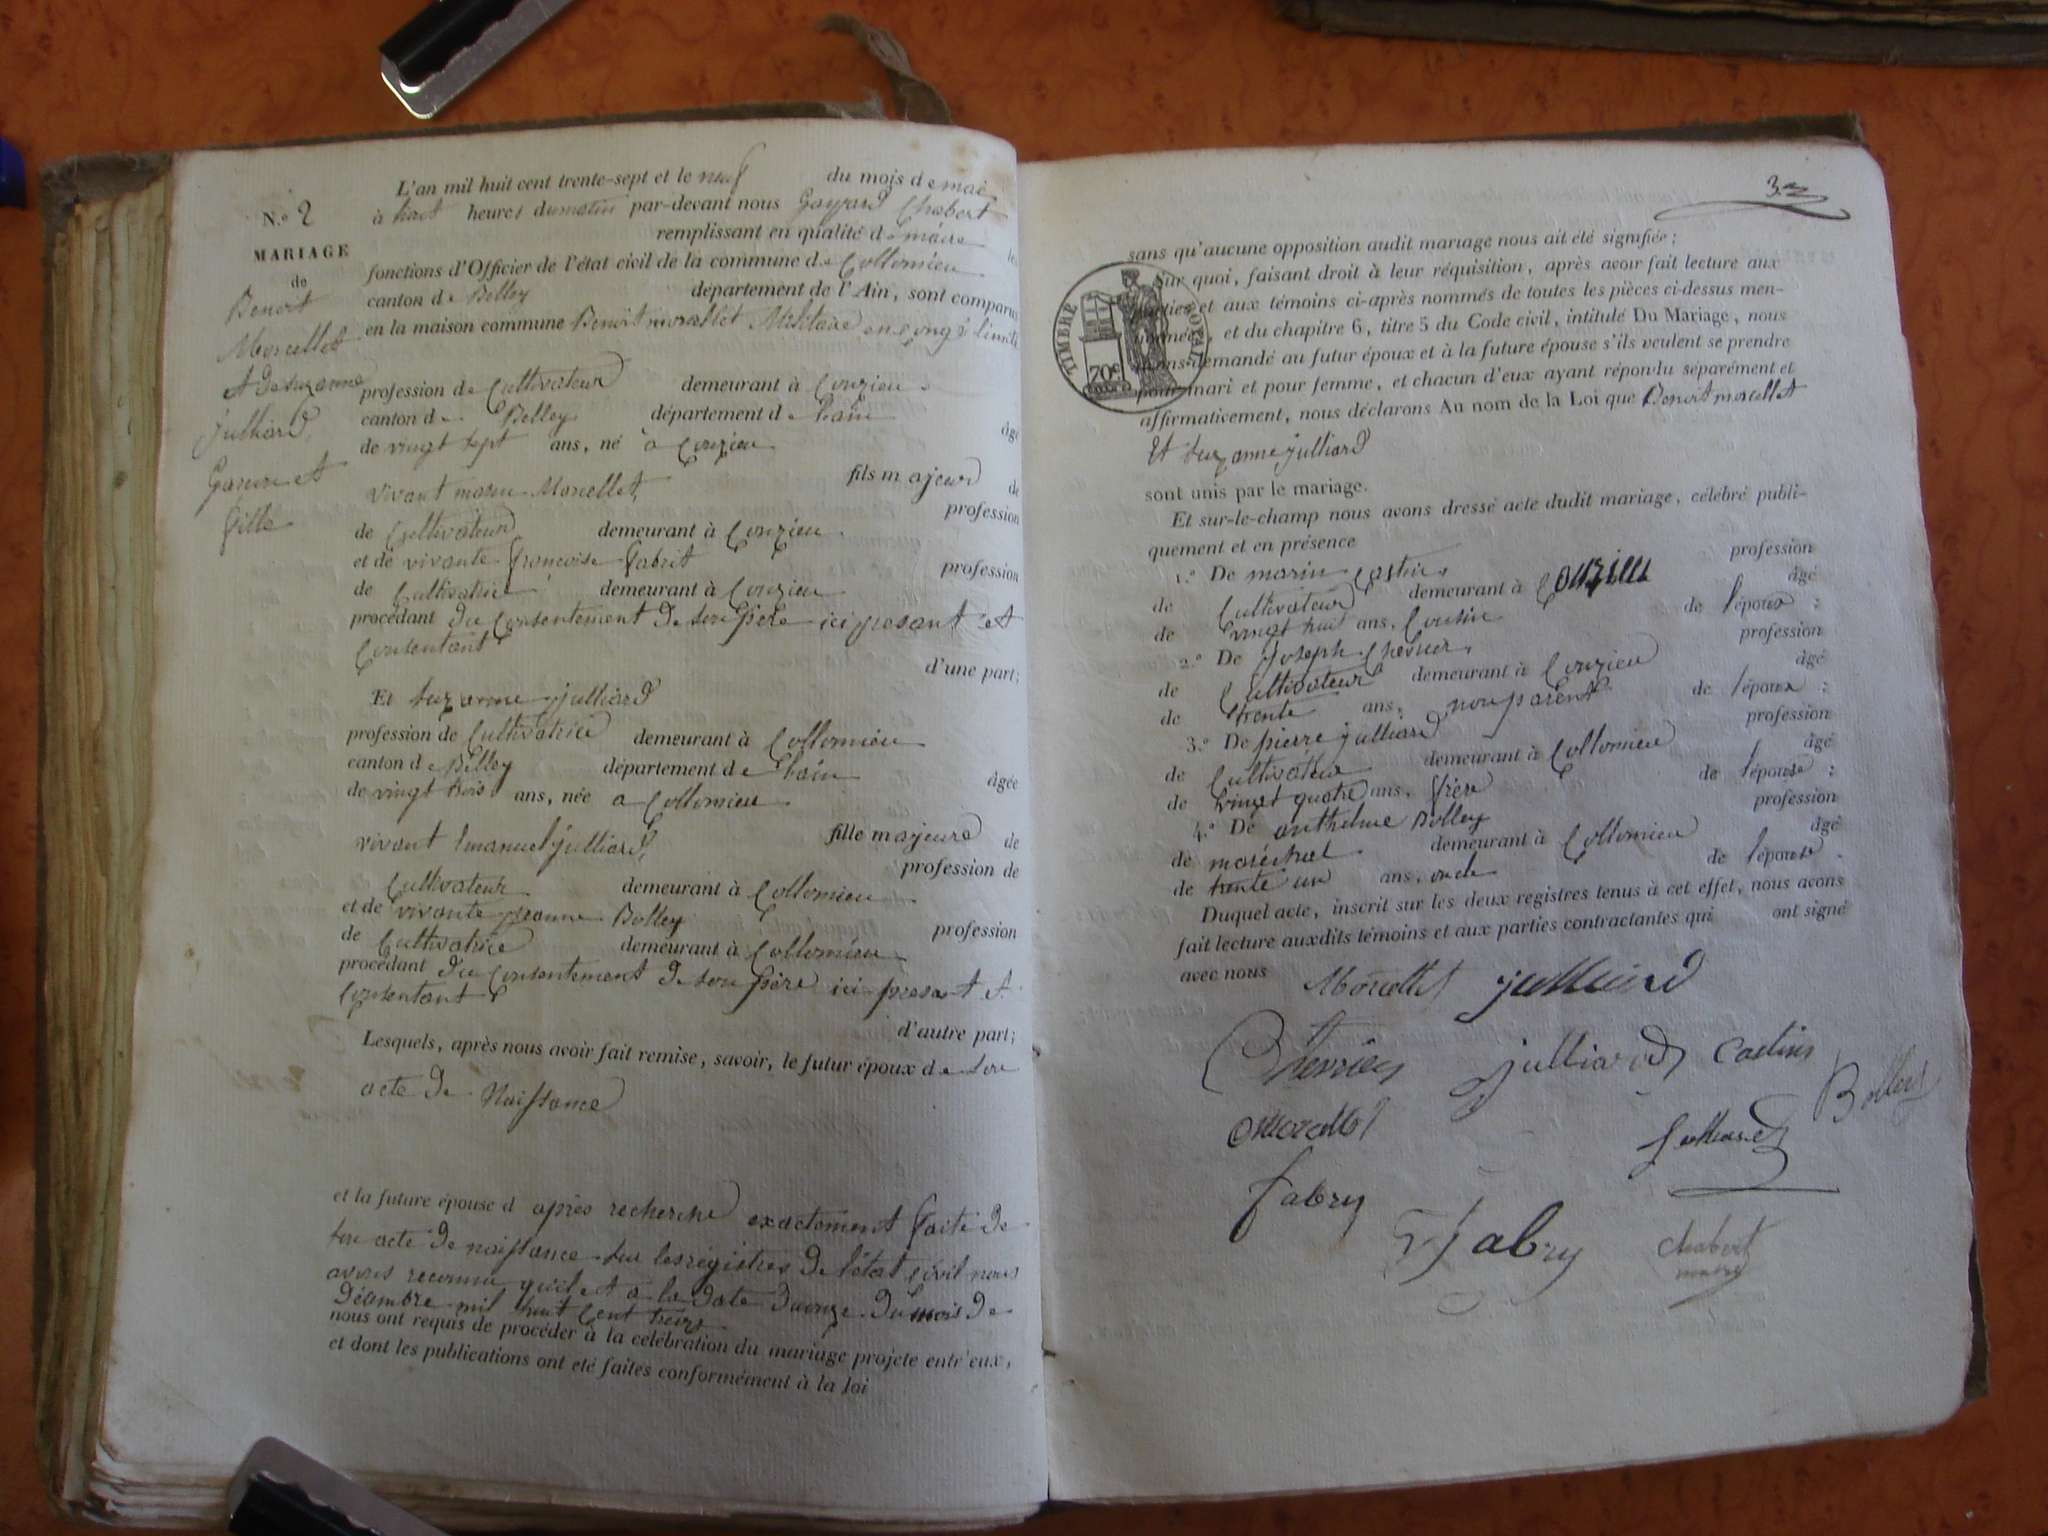 N.° 2
MARIAGE
de
Benoit
Morcellet
et de suzanne
julliard
Garçon et
fille
L'an mil huit cent trente-sept et le neuf du mois de mai
à huit heures du matin par-devant nous Chabert
remplissant en qualité de maire les
fonctions d'Officier de l'état civil de la commune de Collomieu
canton de Belley département de l'Ain, sont comparus
en la maison commune Benoit morcellet Militaire en congé limité
profession de Cultivateur demeurant à Conzieu
canton de Belley département de lain âgé
de vingt sept ans, né à Conzieu
fils majeur de
vivant marin Morcellet profession
de Cultivateur demeurant à Conzieu
et de vivante francoise profession
de Cultivatrice demeurant à Conzieu
procédant du Consentement de son père ici present et
Consentant
d'une part;
Et suzanne julliard
profession de Cultivatrice demeurant à Collomieu
canton de Belley département de lain âgée
de vingt trois ans, née a Collomieu
fille majeure de
vivant Emanuel julliard profession de
Cultivateur demeurant à Collomieu
et de vivante jeanne Bolley profession
de Cultivatrice demeurant à Collomieu
procédant du Consentement de son père ici present et
Consentant
d'autre part;
Lesquels, après nous avoir fait remise, savoir, le futur époux de son
acte de Naissance
et la future épouse d après recherche exactement faite de
son acte de naissance sur les régistres de l'état civil nous
avons reconnu quil et a la date du onze du mois de
Décembre mil huit Cent treize
nous ont requis de procéder à la célébration du mariage projeté entr'eux,
et dont les publications ont été faites conformément à la loi
3
sans qu'aucune opposition audit mariage nous ait été signifiée;
TIMBRE ROYAL
70c
Sur quoi, faisant droit à leur réquisition, après avoir fait lecture aux
parties et aux témoins ci-après nommés de toutes les pièces ci-dessus men-
tionnées, et du chapitre 6, titre 5 du Code civil, intitulé Du Mariage, nous
avons demandé au futur époux et à la future épouse s'ils veulent se prendre
pour mari et pour femme, et chacun d'eux ayant répondu séparément et
affirmativement, nous déclarons Au nom de la Loi que Benoit morcellet
Et suzanne julliard
sont unis par le mariage.
Et sur-le-champ nous avons dressé acte dudit mariage, célébré publi-
quement et en présence
1.° De marin Castin profession
de Cultivateur demeurant à Conzieu âgé
de vingt huit ans, Cousin de l'époux :
2.° De Joseph Chevrier profession
de Cultivateur demeurant à Conzieu âgé
de trente ans, non parent de l'époux :
3.° De pierre julliard profession
de Cultivateur demeurant à Collomieu âgé
de vingt quatre ans, frère de l'épouse :
4.° De anthelme Bolley profession
de maréchal demeurant à Collomieu âgé
de trente un ans, oncle de l'épouse.
Duquel acte, inscrit sur les deux registres tenus à cet effet, nous avons
fait lecture auxdits témoins et aux parties contractantes qui ont signé
avec nous
Morcellet julliard
Chevrier julliard Castin
Morcellet julliard Bolley
fabry
fabry Chabert
maire